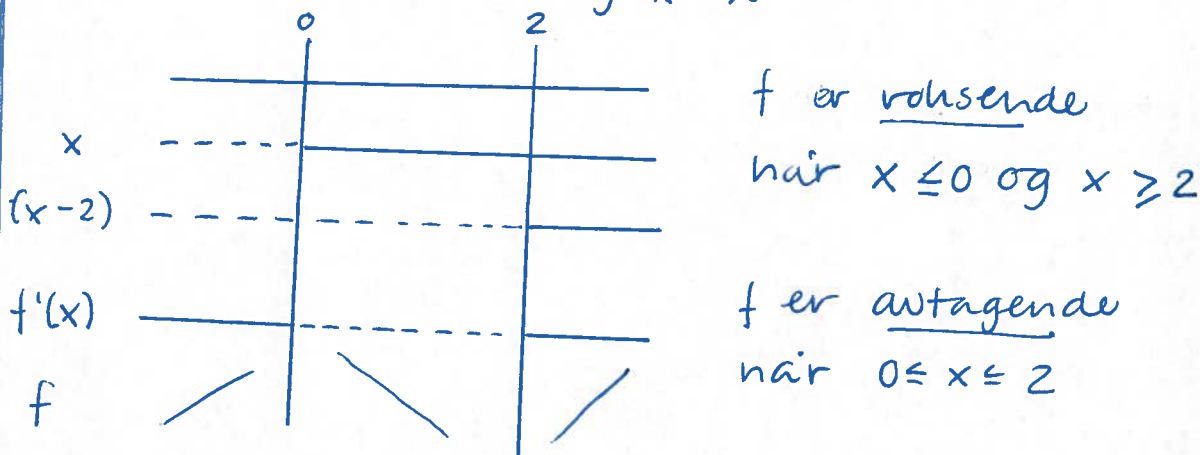 0 2
x
(x-2)
f'(x)
f
f er voksende
når x ≤ 0 og x ≥ 2
f er avtagende
når 0 ≤ x ≤ 2